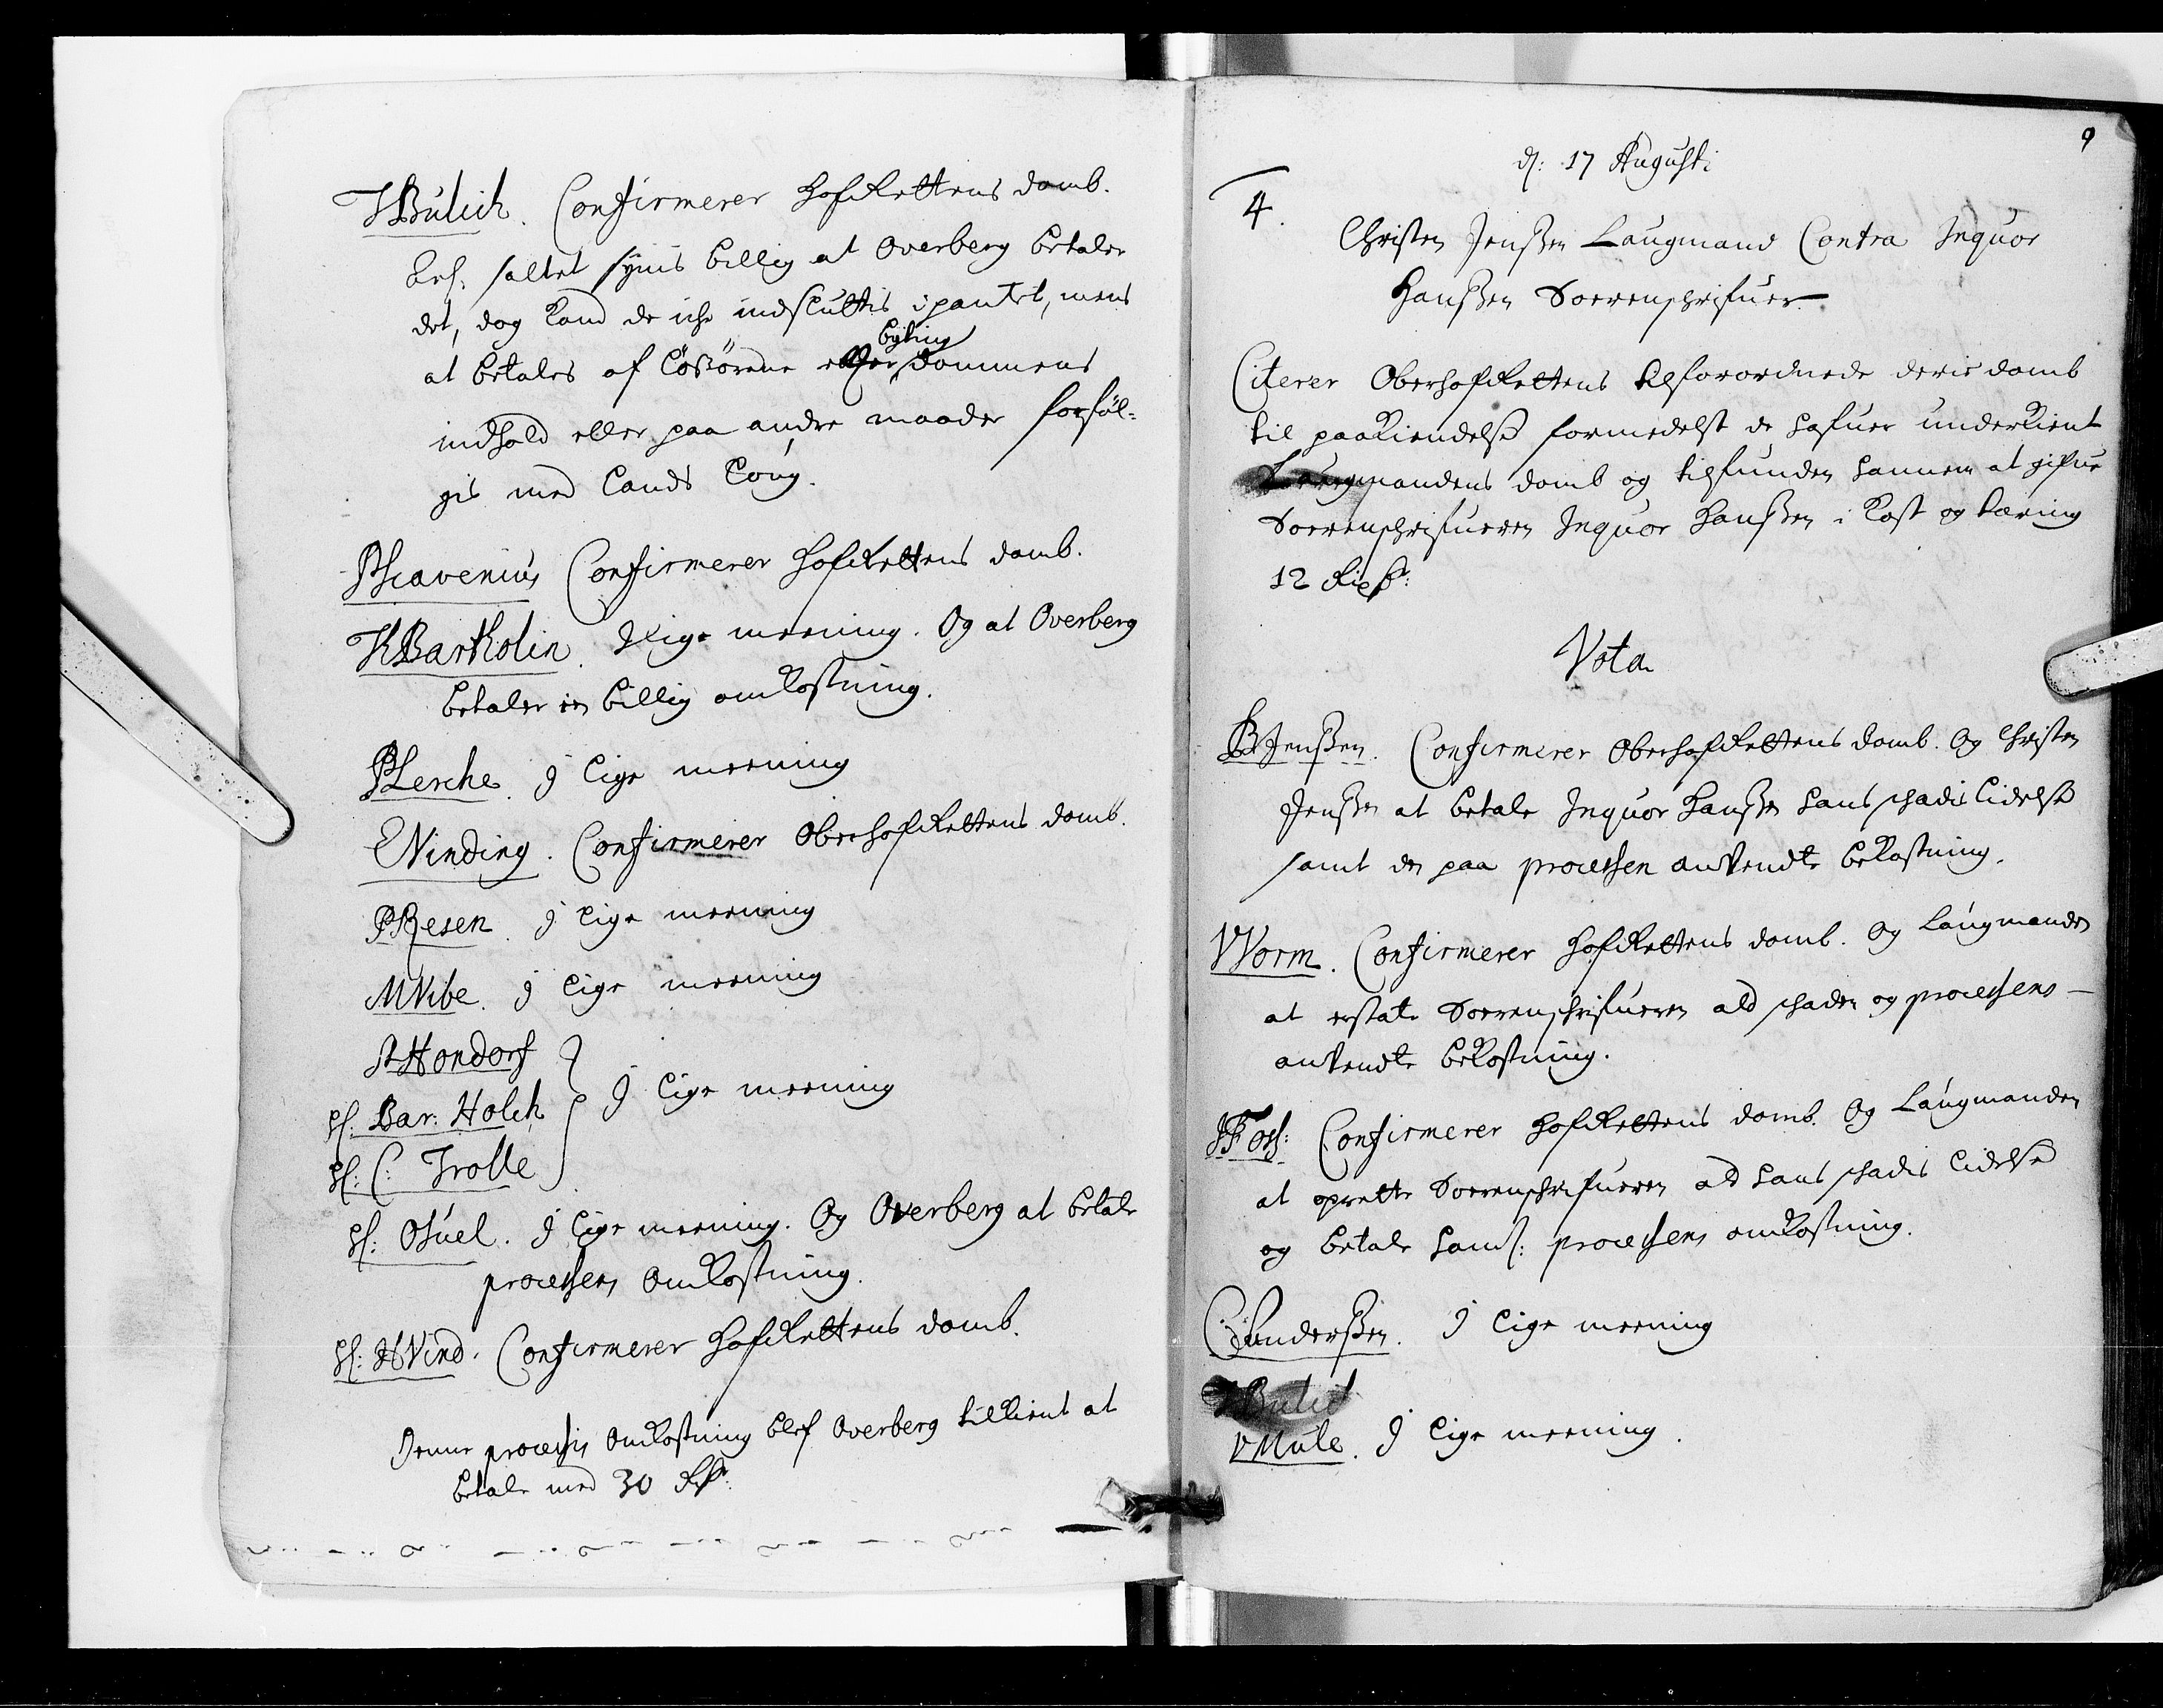 TBülich. Confirmerer hofRettens domb.
saltet sÿnis billig at Overberg betaler
det, dog kand de iche indsluttis i pantet, mens
byting
at betales af løßørene dommens
indhold eller paa andre maader forføl-
gis med Lands Loug.
PScavenius Confirmerer hofRettens domb.
KBartholin. J lige meening. Og at Overberg
betaler en billig omkostning.
PLerche. J lige meening
ENinding. Confirmerer OberhofRettens domb.
PResen. J lige meening
MVibe. J lige meening
StHondorf
H: Bar: Holck J lige meening
H: C: Trolle
H: OJuel. J lige meening. Og Overberg at betale
processens Omkostning.
H: HVind. Confirmerer hofRettens domb.
Denne processis Omkostning blef Overberg tilkient at
betale med 30 Rdr.
9
d: 17 Augusti
4.
Christen Jenßen Laugmand Contra Inguor
Hanßen Sorrenschrifuer
Citerer OberhofRettens tilforordnede deris domb
til paakiendelse formedelst de hafuer underkient
Laugmandens domb og tilfunden hannem at gifue
Sorrenschrifueren Inguor Hanßen i kost og tæring
12 Rixdr:
Vota
BJenßen. Confirmerer OberhofRettens domb. Og Christen
Jenßen at betale Inguor Hanßen hans schadis lidelse
samt den paa processen anvendte bekostning.
WWorm. Confirmerer hofRettens domb. Og Laugmanden
at erstate Sorrenschrifueren ald schaden og processens
anvendte bekostning.
JFoss: Confirmerer hofRettens domb. Og Laugmanden
at oprette Sorrenschrifueren ald hans schadis lidelse
og betale hans: processens omkostning.
CAnderßen. J lige meening
TBulic
VMule. J lige meening.